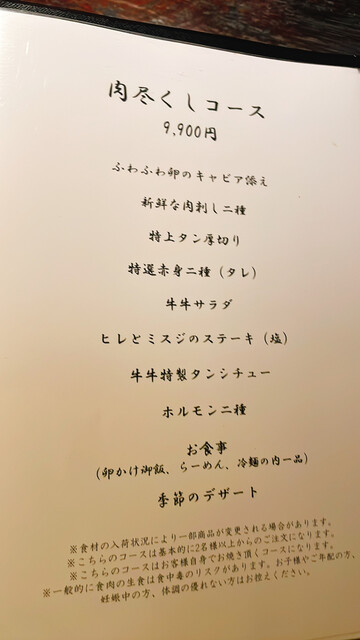 肉尽くしコース
9,900円
ふわふわ卵のキャビア添え
新鮮な肉刺し二種
特上タン厚切り
特選赤身二種（タレ）
牛牛サラダ
ヒレとミスジのステーキ（塩）
牛牛特製タンシチュー
ホルモン二種
お食事
（卵かけ御飯、らーめん、冷麺の内一品）
季節のデザート
※食材の入荷状況により一部商品が変更される場合があります。
※こちらのコースは基本的に2名様以上からのご注文になります。
※こちらのコースはお客様自身でお焼き頂くコースになります。
※一般的に食肉の生食は食中毒のリスクがあります。お子様やご年配の方、
妊娠中の方、体調の優れない方はお控えください。